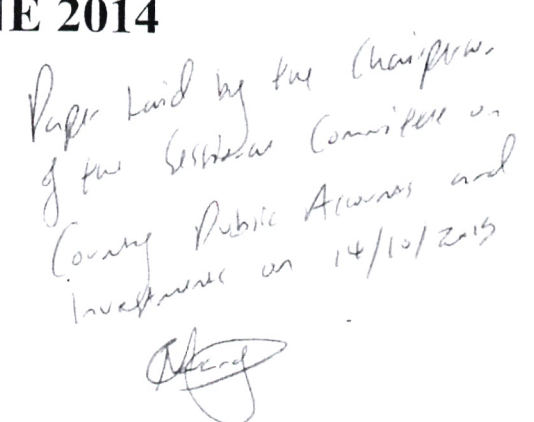 NE 2014
Paper Laid by the Chairperson
of the Sessional Committee on
County Public Accounts and
Investments on 14/10/2015